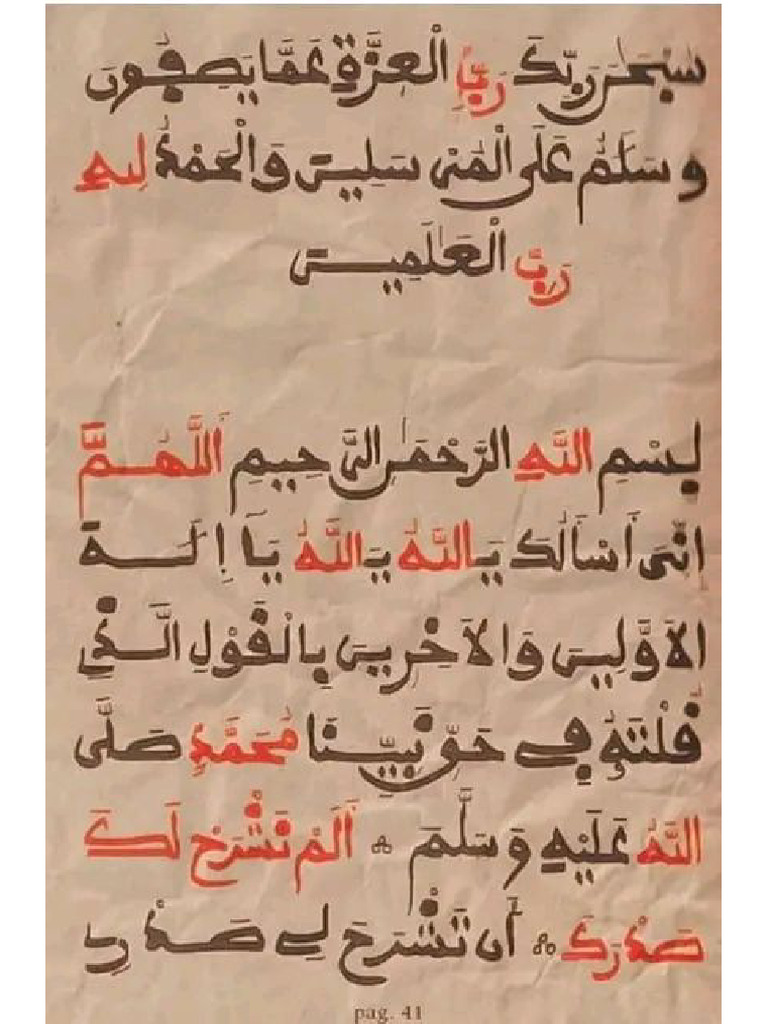 سُبْحَٰنَ رَبِّكَ رَبِّ الْعِزَّةِ عَمَّا يَصِفُونَ
وَسَلَٰمٌ عَلَى الْمُرْسَلِينَ وَالْحَمْدُ لِلهِ
رَبِّ الْعَٰلَمِينَ
بِسْمِ اللَّهِ الرَّحْمَٰنِ الرَّحِيمِ اَللَّهُمَّ
إِنِّى أَسْأَلُكَ يَا اللَّهُ يَا اللَّهُ يَا إِلَٰهَ
الأَوَّلِينَ وَالأَخِرِينَ بِالْقَوْلِ الَّذِي
قُلْتَهُ فِي حَقِّ نَبِيِّنَا مُحَمَّدٍ صَلَّى
اللَّهُ عَلَيْهِ وَسَلَّمَ ܀ أَلَمْ نَشْرَحْ لَكَ
صَدْرَكَ ܀ أَن تَشْرَحَ لِي صَدْرِي
pag. 41